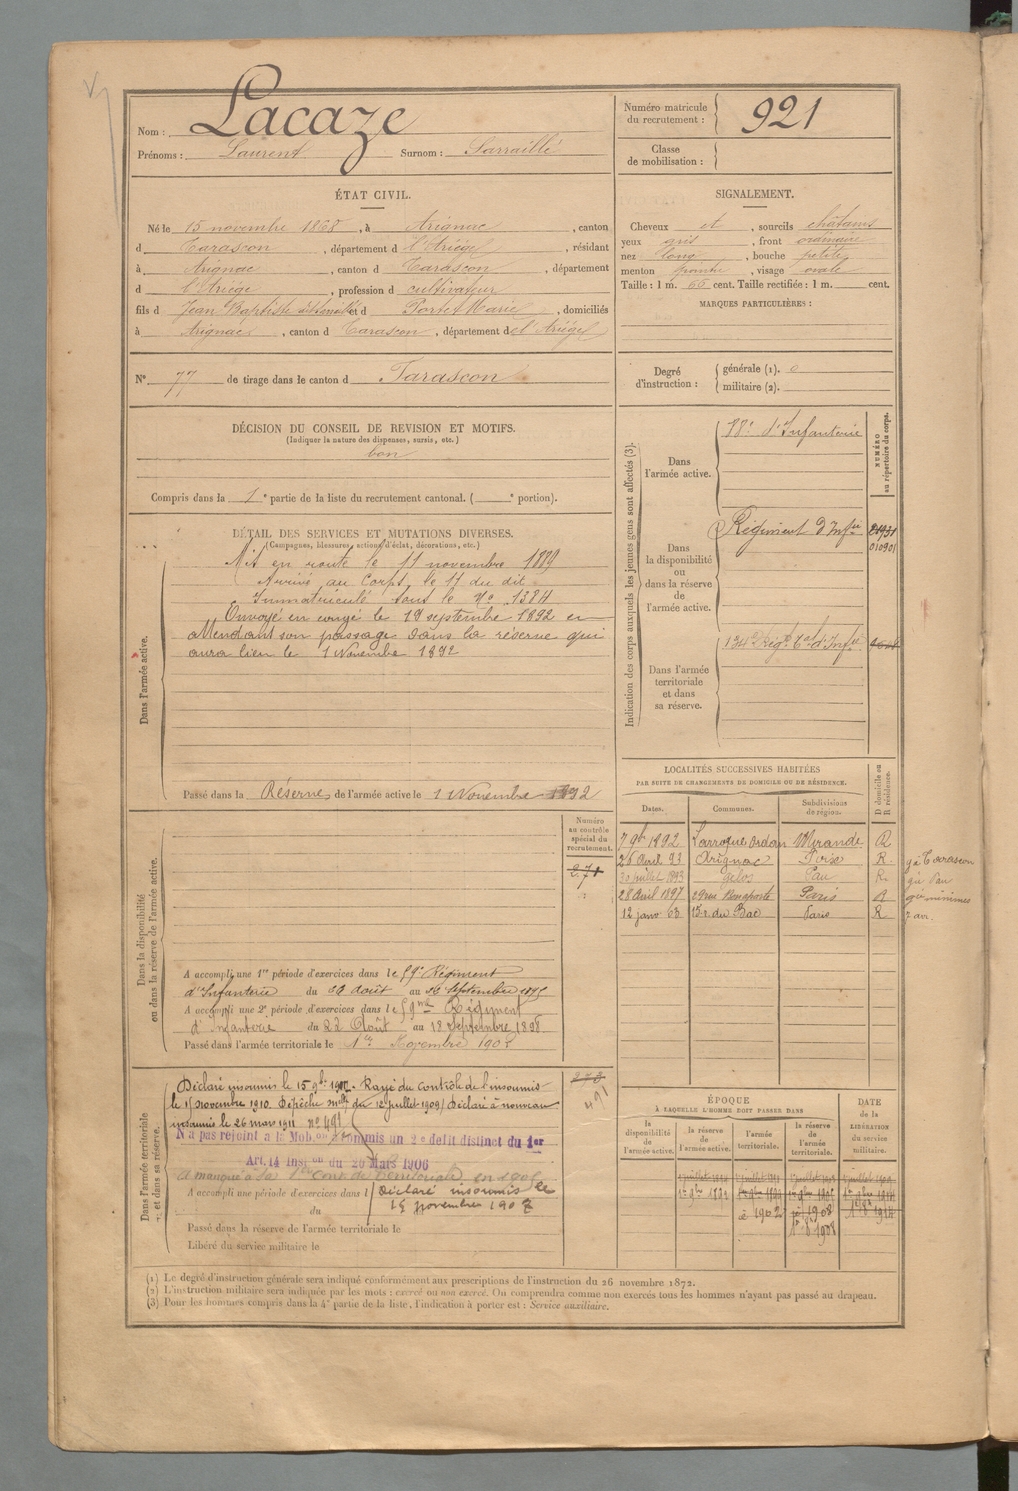 Nom : Lacaze
Prénoms : Laurent Surnom : Sarraillé
Numéro matricule du recrutement : 921
Classe de mobilisation :
ÉTAT CIVIL.
Né le 15 novembre 1868, à Arignac, canton
d Tarascon, département d l'Ariége, résidant
à Arignac, canton d Tarascon, département
d l'Ariége, profession d cultivateur
fils d Jean Baptiste et d Portet Marie, domiciliés
à Arignac, canton d Tarascon, département de l'Ariége
SIGNALEMENT.
Cheveux et, sourcils châtains
yeux gris, front ordinaire
nez long, bouche petite
menton pointu, visage ovale
Taille : 1 m. 66 cent. Taille rectifiée : 1 m. cent.
MARQUES PARTICULIÈRES :
No 77 de tirage dans le canton d Tarascon
Degré d'instruction : générale (1). 0
militaire (2).
DÉCISION DU CONSEIL DE REVISION ET MOTIFS.
(Indiquer la nature des dispenses, sursis, etc.)
bon
Compris dans la 1e partie de la liste du recrutement cantonal. ( e portion).
DÉTAIL DES SERVICES ET MUTATIONS DIVERSES.
(Campagnes, blessures, actions d'éclat, décorations, etc.)
Dans l'armée active.
Mis en route le 11 novembre 1889
Arrivé au Corps le 11 du dit
Immatriculé sous le No 1384
Envoyé en congé le 19 septembre 1892 en
attendant son passage dans la réserve qui
aura lieu le 1 Novembre 1892
Passé dans la Réserve de l'armée active le 1 Novembre 1892
Indication des corps auxquels les jeunes gens sont affectés (3).
NUMÉRO au répertoire du corps.
Dans l'armée active.
88e d'Infanterie
Dans la disponibilité ou dans la réserve de l'armée active.
Régiment d'Infie
010901
Dans l'armée territoriale et dans sa réserve.
134e Régt Tal d'Infie
LOCALITÉS SUCCESSIVES HABITÉES
PAR SUITE DE CHANGEMENTS DE DOMICILE OU DE RÉSIDENCE.
Dates. Communes. Subdivisions de région. D domicile ou R résidence.
7 9b 1892 Larroque Ordan Mirande R
26 Avril 93 Arignac Foix R
30 juillet 1893 Gelos Pau R
28 Avril 1897 29 rue Bonaparte Paris R
12 janv 03 13 r. du Bac Paris R
Dans la disponibilité ou dans la réserve de l'armée active.
Numéro au contrôle spécial du recrutement.
271
A accompli une 1re période d'exercices dans le 59e Régiment
d'Infanterie du août au septembre 1895
A accompli une 2e période d'exercices dans le 59me Régiment
d'Infanterie du 22 Août au 18 Septembre 1898
Passé dans l'armée territoriale le 1er Novembre 1902
Dans l'armée territoriale et dans sa réserve.
Déclaré insoumis le 15 9b 1907. Rayé du contrôle de l'insoumis-
le 15 novembre 1910. Dépêche mlle du 12 juillet 1909/ Déclaré à nouveau
insoumis le 26 mars 1911 no 491
N'a pas rejoint à la Mob.on commis un 2e délit distinct du 1er
Art. 14 Inston du 20 Mars 1906
A manqué à la
A accompli une période d'exercices dans l
Déclaré insoumis le
du 15 novembre 1907
491
Passé dans la réserve de l'armée territoriale le
Libéré du service militaire le
ÉPOQUE
À LAQUELLE L'HOMME DOIT PASSER DANS
la disponibilité de l'armée active. la réserve de l'armée active. l'armée territoriale. la réserve de l'armée territoriale.
DATE de la LIBÉRATION du service militaire.
1902 1908
(1) Le degré d'instruction générale sera indiqué conformément aux prescriptions de l'instruction du 26 novembre 1872.
(2) L'instruction militaire sera indiquée par les mots : exercé ou non exercé. On comprendra comme non exercés tous les hommes n'ayant pas passé au drapeau.
(3) Pour les hommes compris dans la 4e partie de la liste, l'indication à porter est : Service auxiliaire.